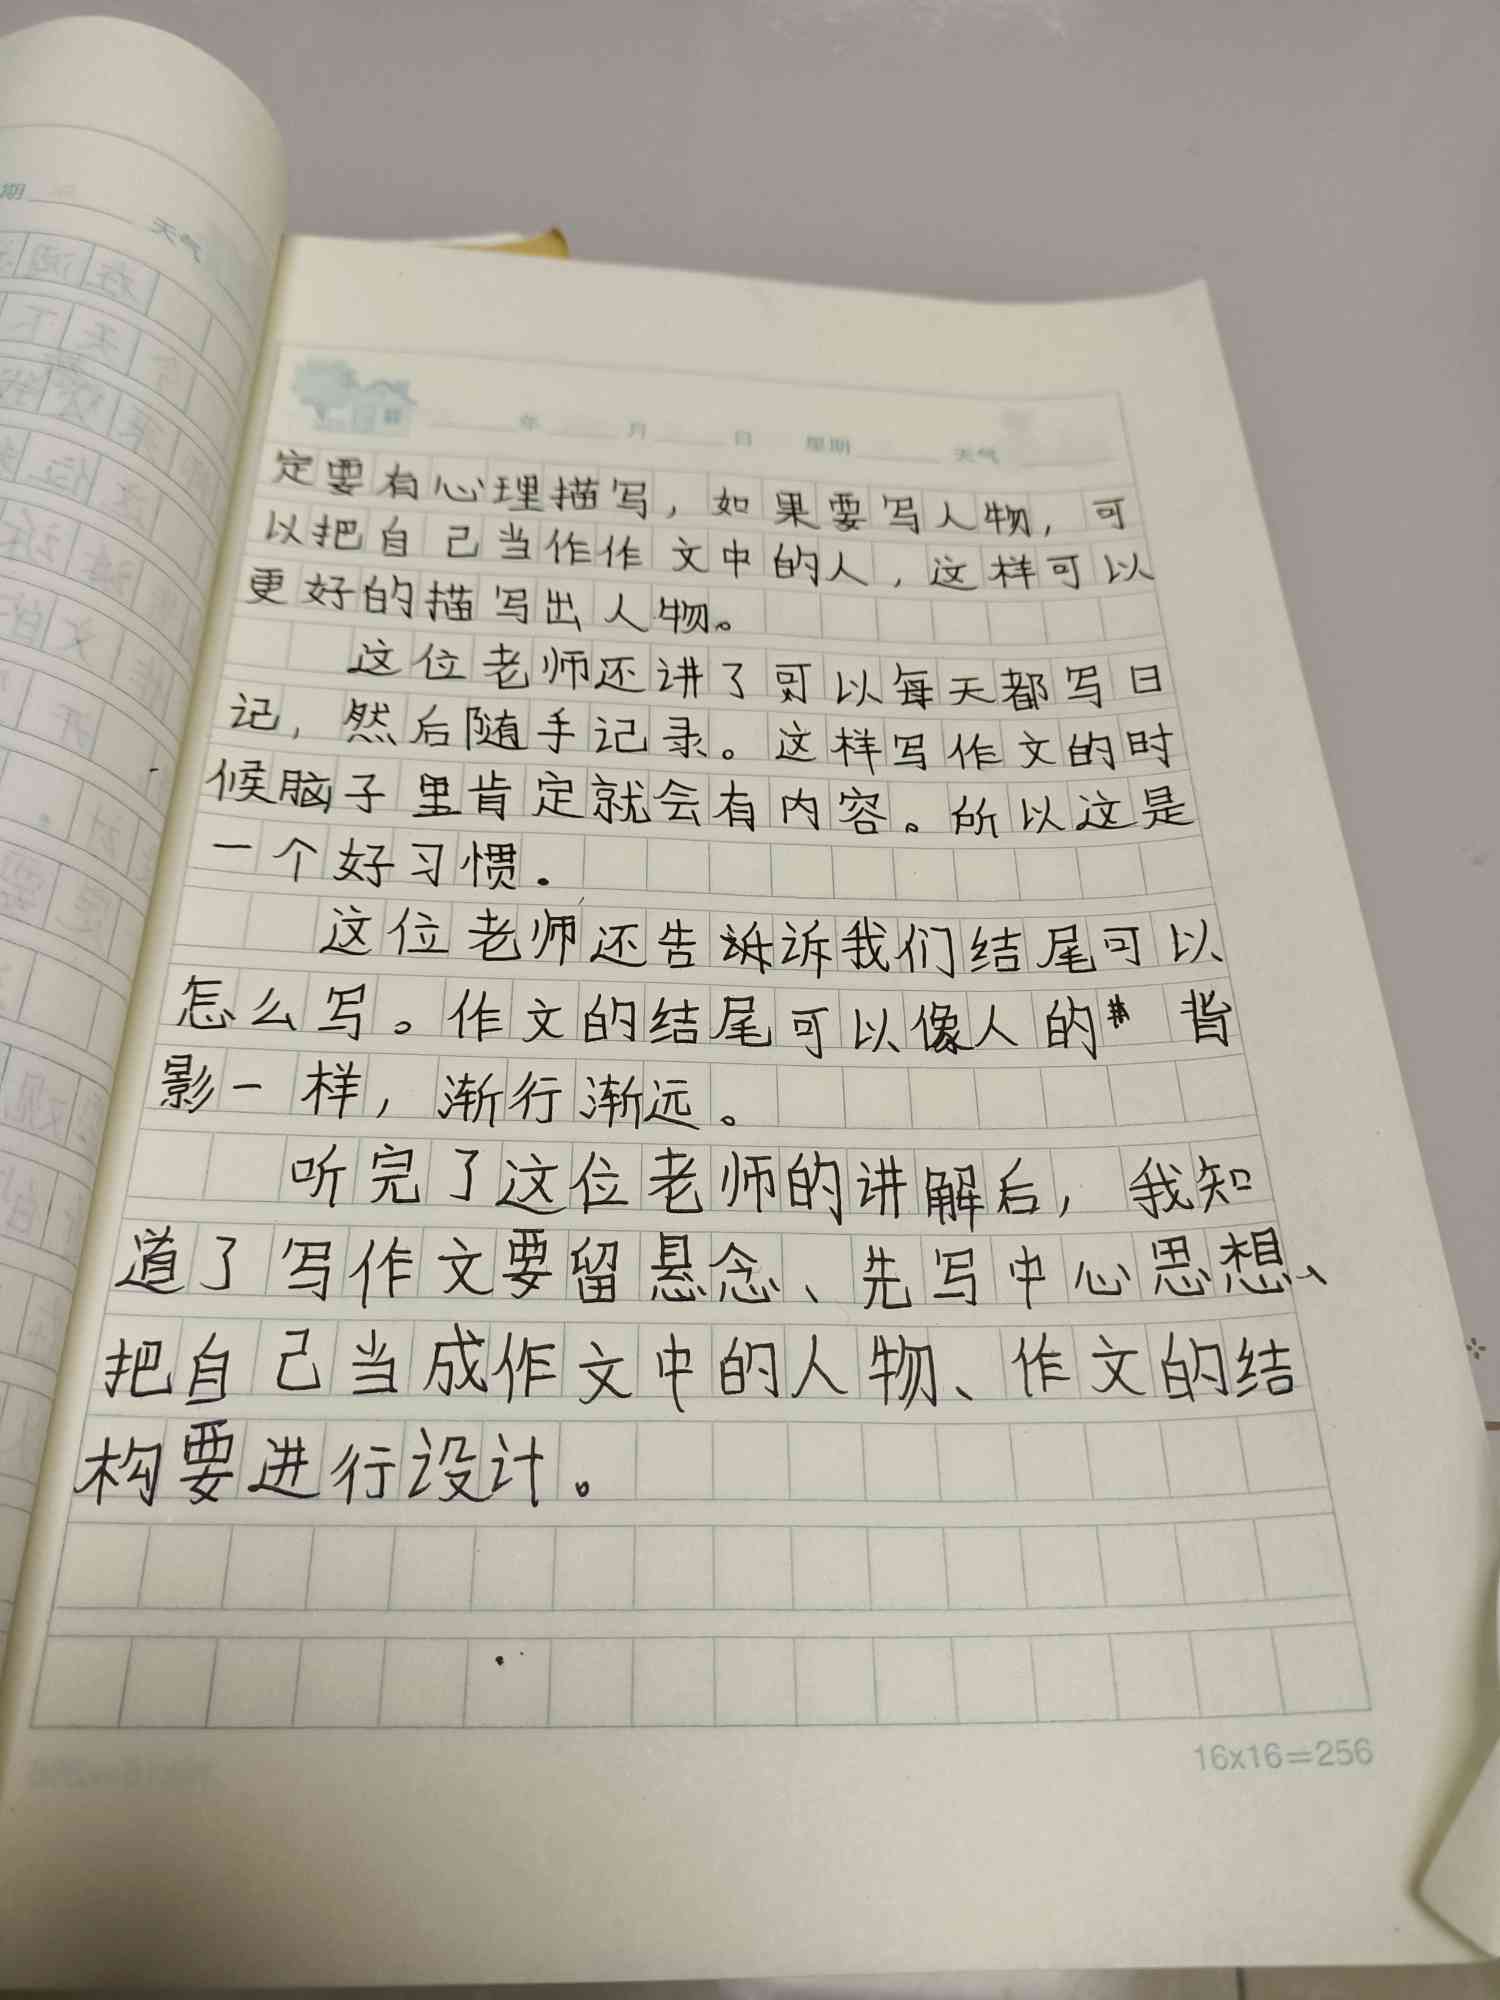 年 月 日 星期 天气
定要有心理描写，如果要写人物，可
以把自己当作作文中的人，这样可以
更好的描写出人物。
这位老师还讲了可以每天都写日
记，然后随手记录。这样写作文的时
候脑子里肯定就会有内容。所以这是
一个好习惯.
这位老师还告诉我们结尾可以
怎么写。作文的结尾可以像人的背
影一样，渐行渐远。
听完了这位老师的讲解后，我知
道了写作文要留悬念、先写中心思想、
把自己当成作文中的人物、作文的结
构要进行设计。
16x16=256
期
天气